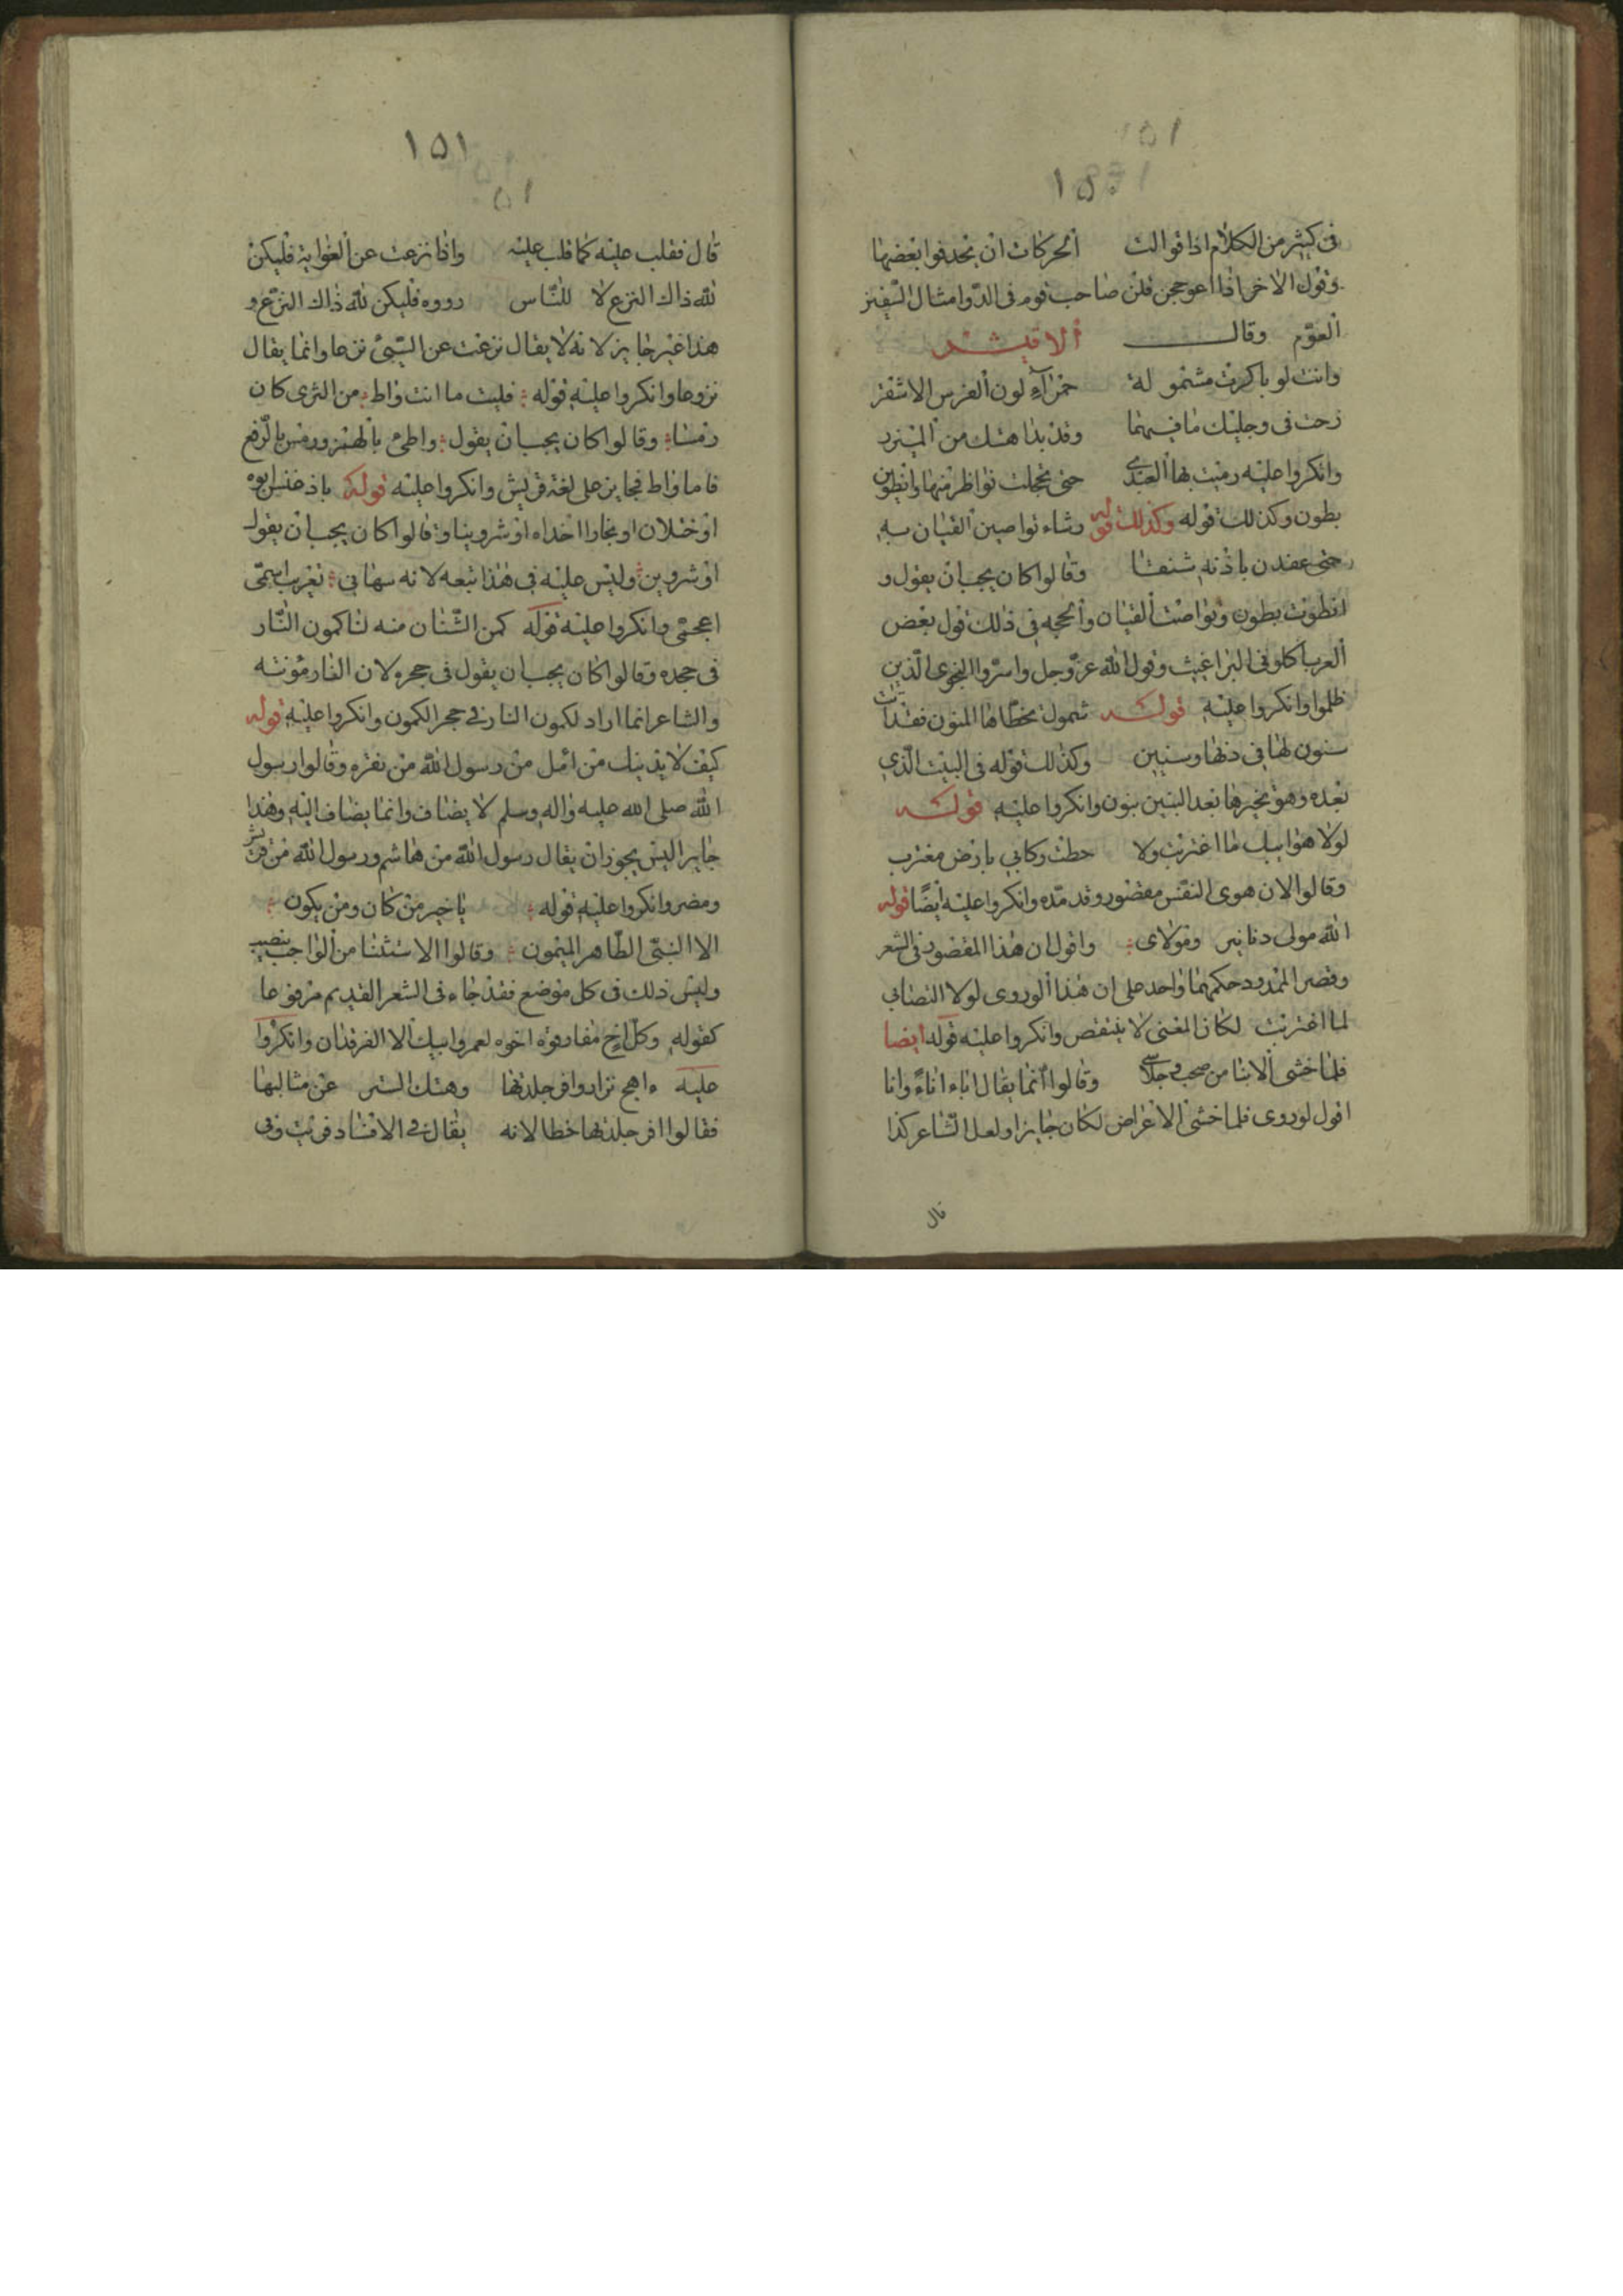 ١٥٠
فى كثير من الكلام اذا توالت الحركات ان يحذفوا بعضها
وقول الاخر اذا اعوججن قلن صاحب قوم فى الدو امثال السفين
العوم وقال الاقيشر
وانت لو باكرت مشمولة حمراء لون الفرس الاشقر
رحت فى رجليك ما فيهما وقد بدا هنك من الميزر
وانكروا عليه رميت بها العبدى حتى تحجلت نواظر منها وانطوين
بطون وكذلك قوله وكذلك قوله رشاء تواصين القيان به
حتى عقدن باذنه شنفا وقالوا كان يجب ان يقول و
انطوت بطون وتواصت القيان والحجه فى ذلك قول بعض
العرب اكلونى البراغيث وقول الله عز وجل واسروا النجوى الذين
ظلموا وانكروا عليه قولـه شمول تخطاها المنون فقد اتت
سنون لها فى دنها وسنين وكذلك قوله فى البيت الذي
بعده وهو يخبرها بعد البنين بنون وانكروا عليه قولـه
لولا هوا بيك ما اغتربت ولا حطت ركابي بارض مغترب
وقالوا لان هوى النفس مقصور وقد مده وانكروا عليه ايضًا قوله
الله مولى دنانير ومولاى واقول ان هذا المقصور فى الشعر
وقصر الممدود حكمهما واحد على ان هذا لو روى لولا التصابي
لما اغتربت لكان المعنى لا ينتقص وانكروا عليه قوله ايضا
فلما خشى الابنا من صحب وجلاسى وقالوا انما يقال اباء اناءً وانا
اقول لو روى فلما خشى الاعراض لكان جايزا ولعل الشاعر كذا
قال
١٥١
قال فقلب عليه كما قلب عليه واذا نزعت عن الغواية فليكن
لله ذاك النزع لا للناس رووه فليكن لله ذاك النزع و
هذا غير جايز لانه لا يقال نزعت عن الشئ نزعا وانما يقال
نزوعا وانكروا عليه قوله فليت ما انت واط من الثرى كان
رمسا وقالوا كان يجب ان يقول واطئ بالهمز ورمس بالرفع
فاما واط فجايز على لغة قريش وانكروا عليه قوله باذ خنس ابوه
او خلان او بخاوا اخداه او شروينا وقالوا كان يجب ان يقول
او شروين وليس عليه فى هذا تبعه لانه سها بي تعريب اسم
اعجمى وانكروا عليه قوله كمن الشنان منه لنا كمون النار
فى حجره وقالوا كان يجب ان يقول فى حجره لان النار مؤنثه
والشاعر انما اراد لكمون النار فى حجر الكمون وانكروا عليه قوله
كيف لا يدنيك من امل من رسول الله من نفره وقالوا رسول
الله صلى الله عليه واله وسلم لا يضاف وانما يضاف اليه وهذا
جايز اليس يجوز ان يقال رسول الله من هاشم ورسول الله من قريش
ومضر وانكروا عليه قوله يا خير من كان ومن يكون
الا النبى الطاهر الميمون وقالوا الاستثنا من الواجب بنصب
وليس ذلك فى كل موضع فقد جاء فى الشعر القديم مرفوعا
كقوله وكل اخ مفارقه اخوه لعمر ابيك الا الفرقدان وانكروا
عليه واهج نزارا وافر جلدتها وهتك الستر عن مثالبها
فقالوا افر جلدتها خطا لانه يقال فى الافساد فريت وفى